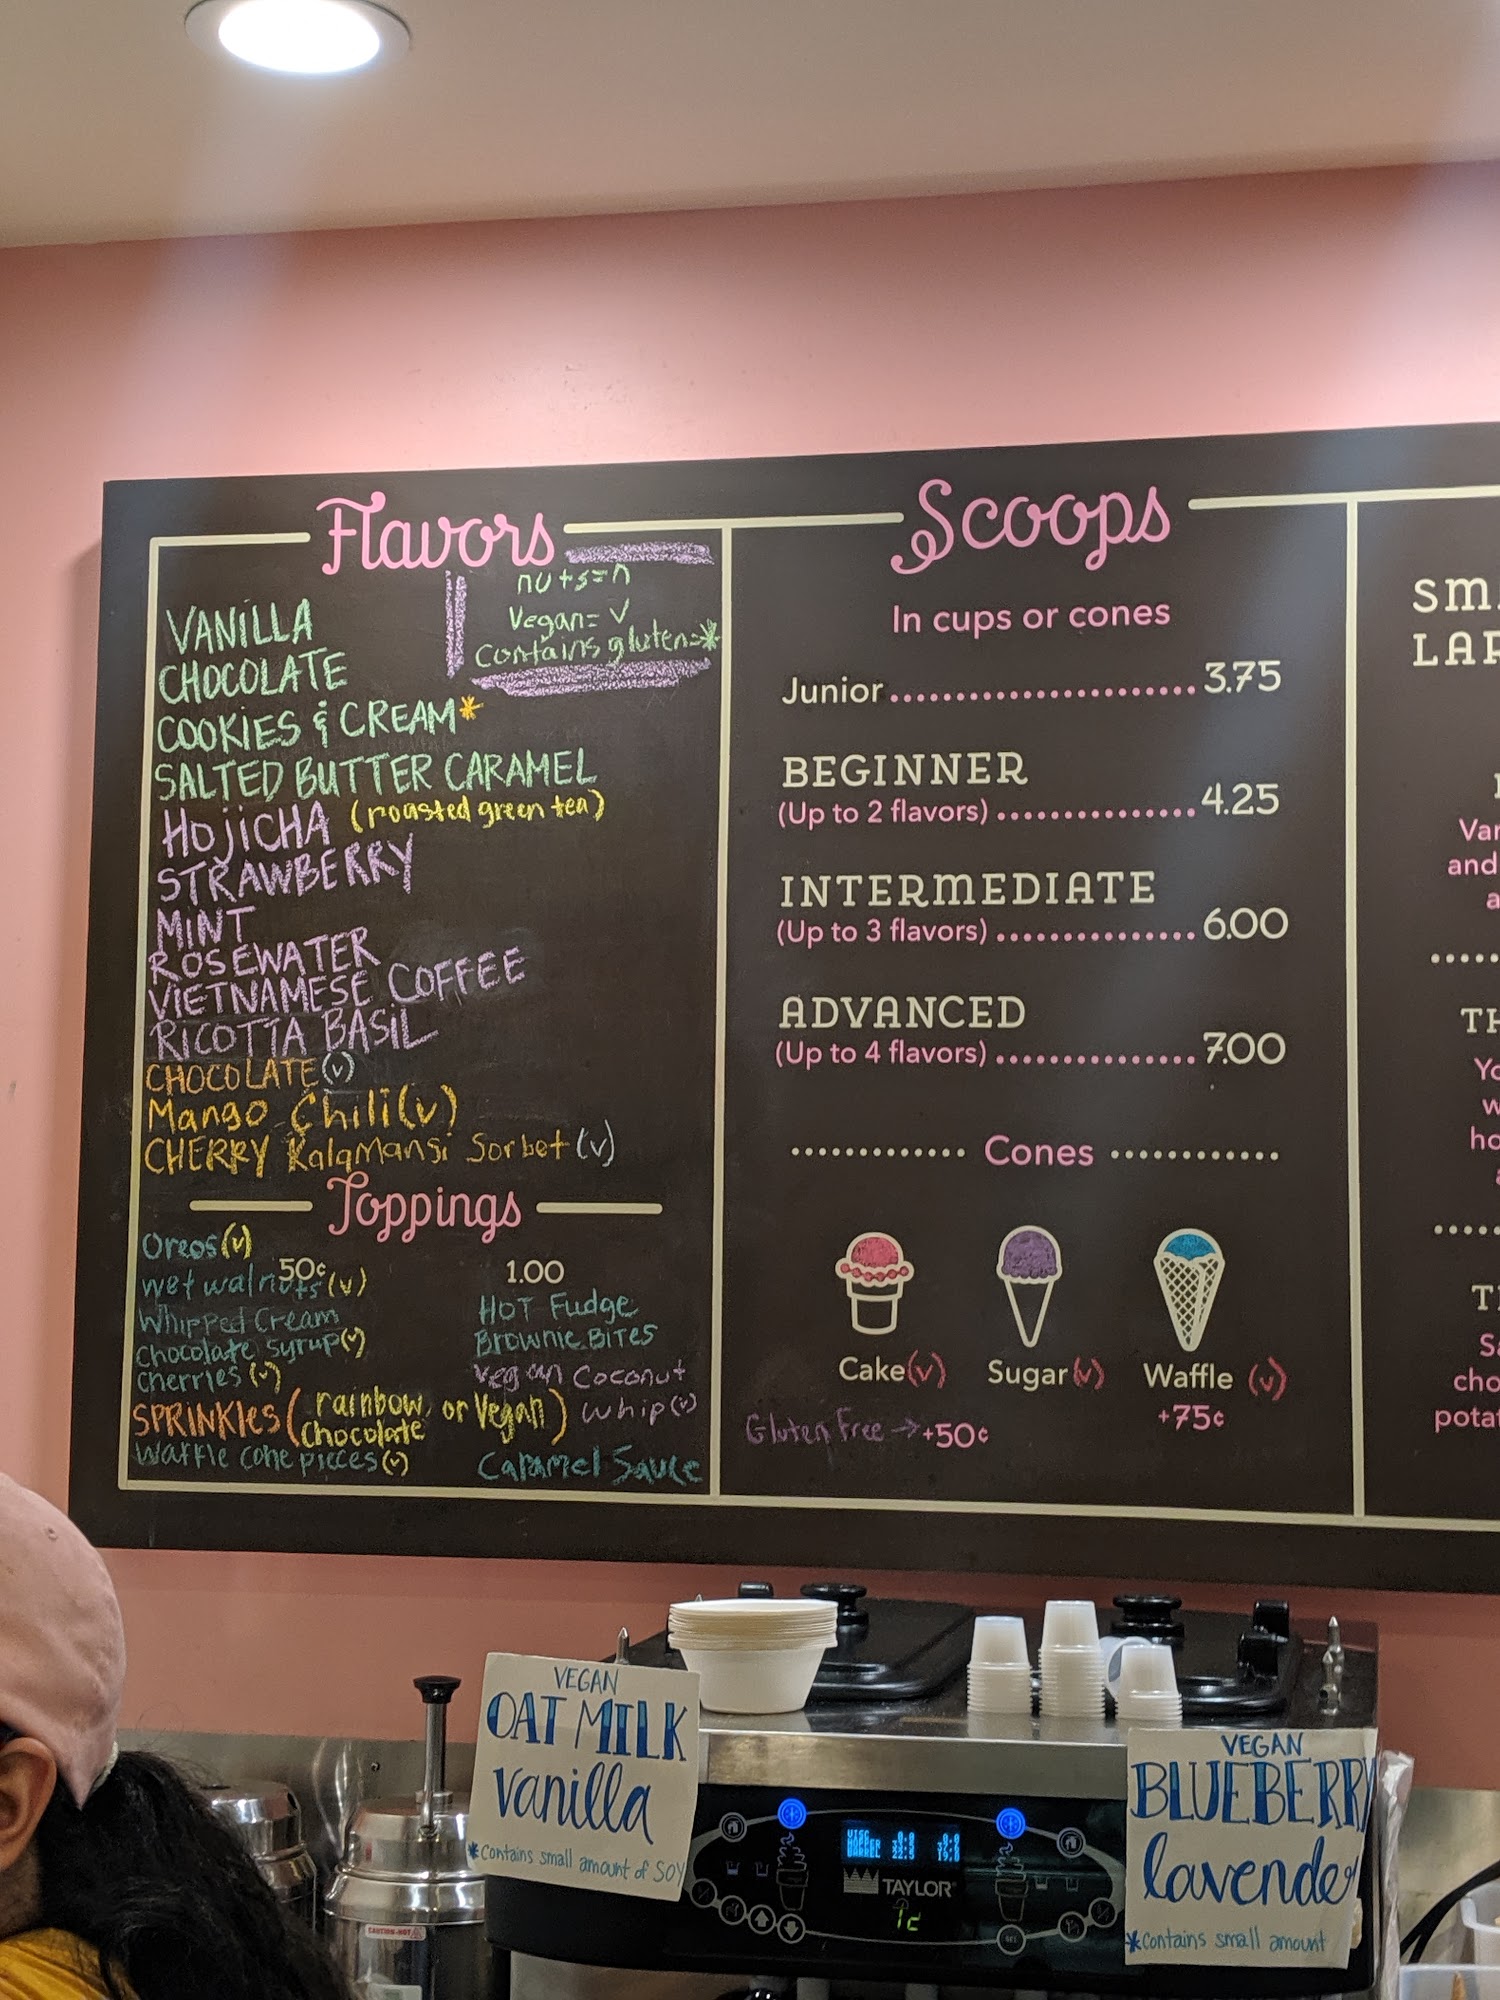 Flavors
nuts=n
Vegan= V
Contains gluten=*
VANiLLA
CHOCOLATE
COOKIES & CREAM*
SALTED BUTTER CARAMEL
HOJICHA (roasted green tea)
STRAWBERRY
MiNT
ROSEWATER
VIETNAMESE COFFEE
RICOTTA BASiL
CHOCOLATE (v)
Mango Chili (v)
CHERRY KalaMansi Sorbet (v)
Toppings
Oreos (v)
50¢
wet walnuts (v)
Whipped Cream
Chocolate Syrup (v)
Cherries (v)
SPRINKlES (rainbow, or Vegan)
Chocolate
Waffle Cone pieces (v)
1.00
HOT Fudge
Brownie Bites
Vegan Coconut
Whip (v)
Caramel Sauce
Scoops
In cups or cones
Junior 3.75
BEGINNER
(Up to 2 flavors) 4.25
INTERMEDIATE
(Up to 3 flavors) 6.00
ADVANCED
(Up to 4 flavors) 7.00
Cones
Cake (v)
Sugar (v)
Waffle (v)
+75¢
Gluten Free → +50¢
SM
LAR
Var
and
a
TH
Yo
w
ho
a
T
Sa
cho
potat
VEGAN
OAT MILK
vanilla
*contains small amount of SOY
TAYLOR
VEGAN
BLUEBERRY
lavender
*contains small amount
CAUTION-HOT